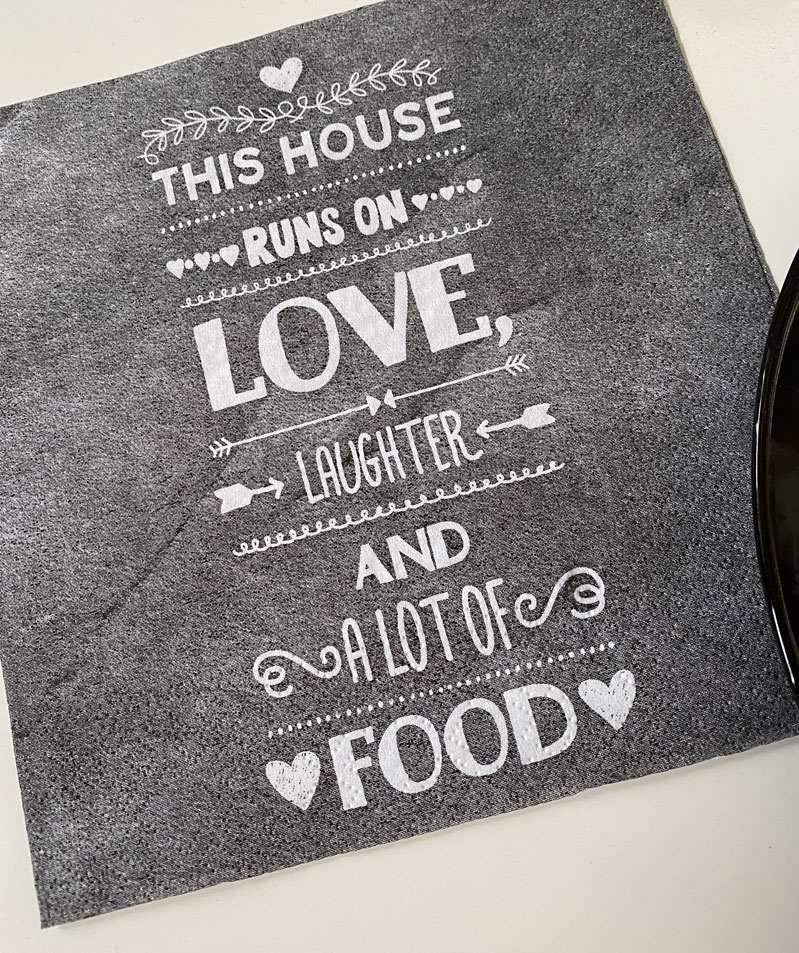 THIS HOUSE
RUNS ON
LOVE,
LAUGHTER
AND
A LOT OF
FOOD